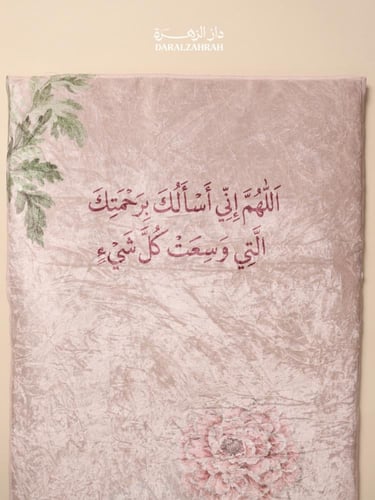 دار الزهرة
DARALZAHRAH
اَللّٰهُمَّ إِنِّي أَسْأَلُكَ بِرَحْمَتِكَ
الَّتِي وَسِعَتْ كُلَّ شَيْءٍ